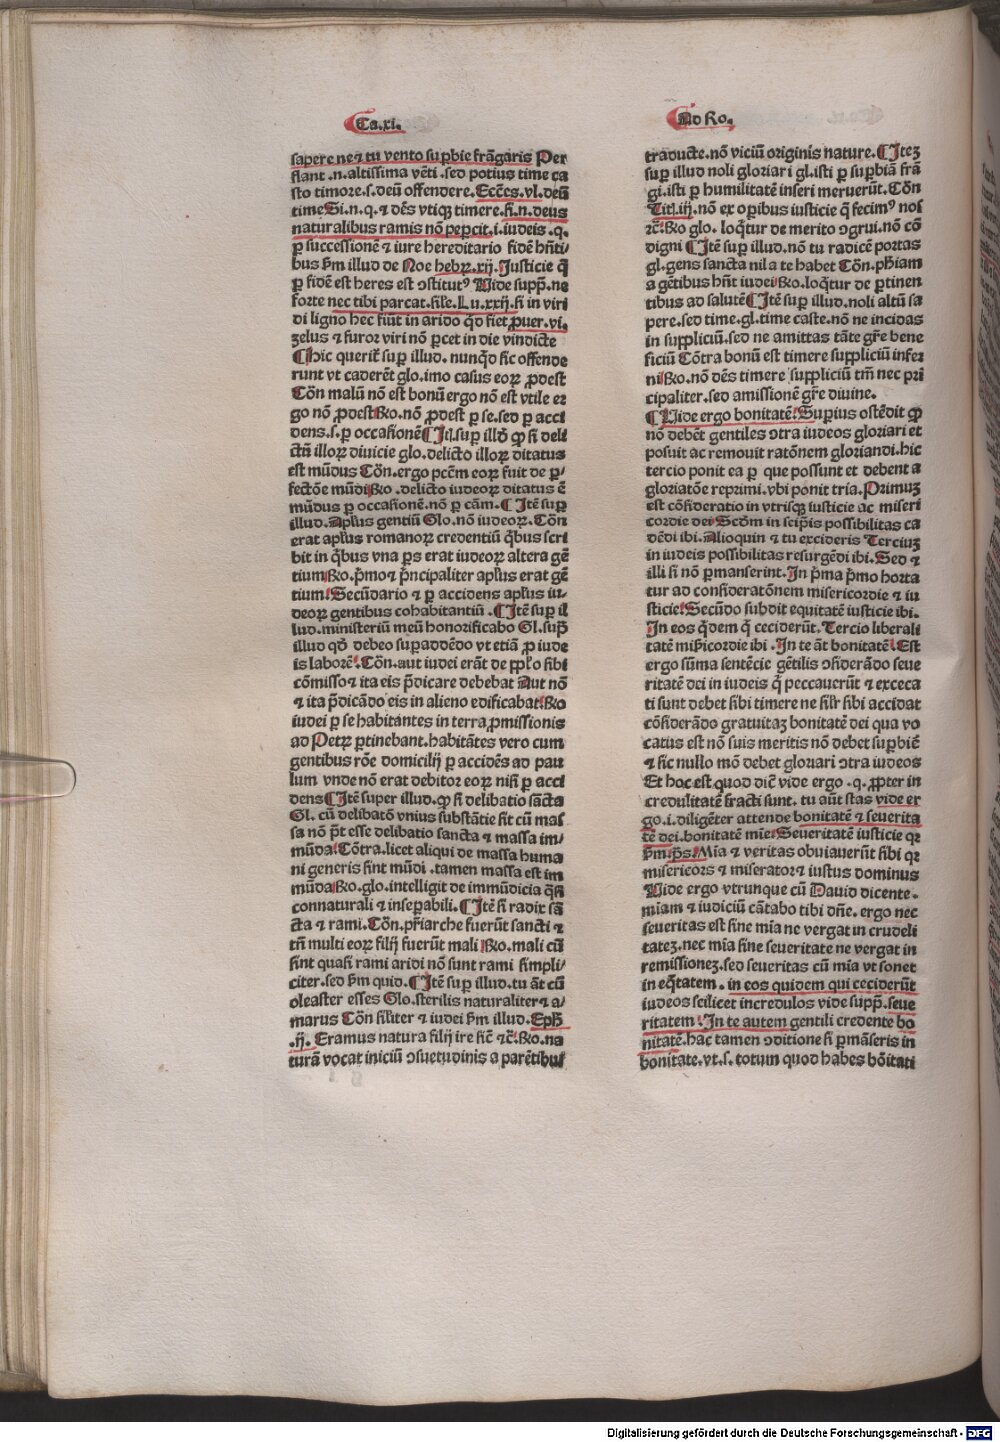 Ca.xi.
sapere ne ⁊ tu vento sup̄bie frāgaris Per
flant .n. altissima vēti .sed potius time ca
sto timore .s. deū offendere. Ecc̄es. vl. deū
time Si .n. q. ⁊ dēs vtiqʒ timere. si .n. deus
naturalibus ramis nō peꝑcit .i. iudeis .q.
ꝑ successionē ⁊ iure hereditario fidē hn̄ti⸗
bus ẜm illud de Noe hebꝝ. xij. Justicie q̄
ꝑ fidē est heres est ↄstitutꝰ Vide supp̄. ne
forte nec tibi parcat. sil̄e. Lu. xxij. si in viri
di ligno hec fiūt in arido qd̄ fiet ꝓuer. vi.
zelus ⁊ furor viri nō ꝑcet in die vindicte
¶ Hic querit᷑ suꝑ illud. nunqd̄ sic offende
runt vt caderēt glo. imo casus eoꝝ ꝓdest
Cōn malū nō est bonū ergo nō est vtile er
go nō ꝓdest Ro. nō ꝓdest ꝑ se. sed ꝑ acci
dens .s. ꝑ occasionē ¶ Jt̄. suꝑ illd̄ ꝙ si deli
ctū illoꝝ diuicie glo. delicto illoꝝ ditatus
est mūdus Cōn. ergo pc̄m eoꝝ fuit de ꝑ⸗
fectōe mūdi Ro. delicto iudeoꝝ ditatus ē
mūdus ꝑ occasionē. nō ꝑ cām. ¶ Jtē suꝑ
illud. Apl̄us gentiū Glo. nō iudeoꝝ. Cōn
erat apl̄us romanoꝝ credentiū qb̄us scri
bit in qb̄us vna ꝑs erat iudeoꝝ altera gē
tium Ro. p̄mo ⁊ p̄ncipaliter apl̄us erat gē
tium Secūdario ⁊ ꝑ accidens apl̄us iu⸗
deoꝝ gentibus cohabitantiū. ¶ Jtē suꝑ il
lud. ministeriū meū honorificabo Gl. sup̄
illud qd̄ debeo suꝑaddēdo vt etiā ꝓ iude
is laborē. Cōn. aut iudei erāt de pp̄lo sibi
cōmisso ⁊ ita eis p̄dicare debebat Aut nō
⁊ ita p̄dicādo eis in alieno edificabat Ro
iudei ꝑ se habitantes in terra ꝓmissionis
ad Petꝝ ꝑtinebant. habitātes vero cum
gentibus rōe domicilij ꝑ accidēs ad pau
lum vnde nō erat debitor eoꝝ nisi ꝑ acci
dens ¶ Jtē super illud. ꝙ si delibatio sācta
Gl. cū delibatō vnius substātie sit cū mas
sa nō pt̄ esse delibatio sancta ⁊ massa im⸗
mūda Cōtra. licet aliqui de massa huma
ni generis sint mūdi .tamen massa est im
mūda Ro. glo. intelligit de immūdicia qs̄i
connaturali ⁊ inseꝑabili. ¶ Jtē si radix sā
cta ⁊ rami. Cōn. pr̄iarche fuerūt sancti ⁊
tn̄ multi eoꝝ filij fuerūt mali Ro. mali cū
sint quasi rami aridi nō sunt rami simpli⸗
citer. sed ẜm quid. ¶ Jtē suꝑ illud. tu āt cū
oleaster esses Glo. sterilis naturaliter ⁊ a⸗
marus Cōn sil̄iter ⁊ iudei ẜm illud. Eph̄
.ij. Eramus natura filij ire sic̄ ⁊c̄. Ro. na
turā vocat iniciū ↄsuetudinis a parētibus
Ad Ro.
traducte. nō viciū originis nature. ¶ Jteʒ
suꝑ illud noli gloriari gl. isti ꝑ suꝑbiā frā
gi. isti ꝑ humilitatē inseri meruerūt. Cōn
Tit. iij. nō ex oꝑibus iusticie q̄ fecimꝰ nos
⁊c̄. Ro glo. loqt̄ur de merito ↄgrui. nō cō
digni ¶ Jtē suꝑ illud. nō tu radicē portas
gl. gens sancta nil a te habet Cōn. ph̄iam
a gētibus hn̄t iudei Ro. loqt̄ur de ꝑtinen
tibus ad salutē ¶ Jtē suꝑ illud. noli altū sa
pere. sed time. gl. time caste. nō ne incidas
in suppliciū. sed ne amittas tāte gr̄e bene
ficiū Cōtra bonū est timere suppliciū infer
ni Ro. nō dēs timere suppliciū tm̄ nec pri
cipaliter. sed amissionē gr̄e diuine.
¶ Vide ergo bonitatē. Suꝑius ostēdit ꝙ
nō debēt gentiles ↄtra iudeos gloriari et
posuit ac remouit ratōnem gloriandi. hic
tercio ponit ea ꝑ que possunt et debent a
gloriatōe reprimi. vbi ponit tria. Primuʒ
est cōsideratio in vtrisqʒ iusticie ac miseri
cordie dei Scd̄m in seip̄is possibilitas ca
dēdi ibi. Alioquin ⁊ tu excideris Terciuʒ
in iudeis possibilitas resurgēdi ibi. Sed ⁊
illi si nō ꝑmanserint. Jn p̄ma p̄mo horta
tur ad consideratōnem misericordie ⁊ iu
sticie Secūdo subdit equitatē iusticie ibi.
Jn eos qd̄em q̄ ceciderūt. Tercio liberali
tatē mis̄ricordie ibi. Jn te āt bonitatē. Est
ergo sūma sentēcie gētilis ↄsiderādo seue
ritatē dei in iudeis q̄ peccauerūt ⁊ exceca
ti sunt debet sibi timere ne sil̄r sibi accidat
cōsiderādo gratuitaʒ bonitatē dei qua vo
catus est nō suis meritis nō debet suꝑbiē
⁊ sic nullo mō debet gloriari ↄtra iudeos
Et hoc est quod dic̄ vide ergo .q. ꝓpter in
credulitatē fracti sunt. tu aūt stas vide er
go .i. diligēter attende bonitatē ⁊ seuerita
tē dei. bonitatē mīe Seueritatē iusticie qꝛ
ẜm. ps̄. Mīa ⁊ veritas obuiauerūt sibi qꝛ
misericors ⁊ miserator ⁊ iustus dominus
Vide ergo vtrunque cū Dauid dicente.
mīam ⁊ iudiciū cātabo tibi dn̄e. ergo nec
seueritas est sine mīa ne vergat in crudeli
tateʒ. nec mīa sine seueritate ne vergat in
remissioneʒ. sed seueritas cū mīa vt sonet
in eqt̄atem. in eos quidem qui ceciderūt
iudeos scilicet incredulos vide supp̄. seue
ritatem Jn te autem gentili credente bo
nitatē. hac tamen ↄditione si ꝑmāseris in
bonitate. vt .s. totum quod habes bōitati
Digitalisierung gefördert durch die Deutsche Forschungsgemeinschaft - DFG